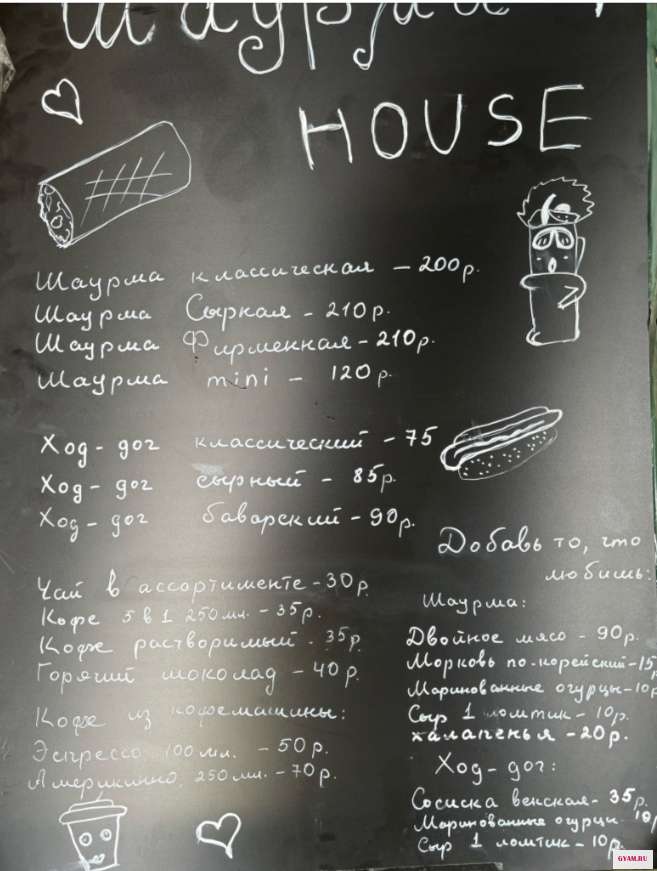 Шаурма
HOUSE
Шаурма классическая - 200р.
Шаурма Сырная - 210р.
Шаурма Фирменная - 210р.
Шаурма mini - 120р.
Ход-дог классический - 75
Ход-дог сырный - 85р.
Ход-дог баварский - 90р.
Чай в ассортименте - 30р.
Кофе 3 в 1 250мл. - 35р.
Кофе растворимый - 35р.
Горячий шоколад - 40р.
Кофе из кофемашины:
Эспрессо 100мл. - 50р.
Американо 250мл. - 70р.
Добавь то, что
любишь:
Шаурма:
Двойное мясо - 90р.
Морковь по-корейский - 15р
Маринованные огурцы - 10р
Сыр 1 ломтик - 10р.
халапенья - 20р.
Ход-дог:
Сосиска венская - 35р.
Маринованные огурцы - 10р
Сыр 1 ломтик - 10р.
GYAM.RU